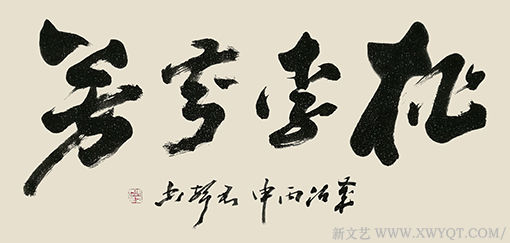 桃李芬芳
歲次丙申
新文艺 WWW.XWYQT.COM/